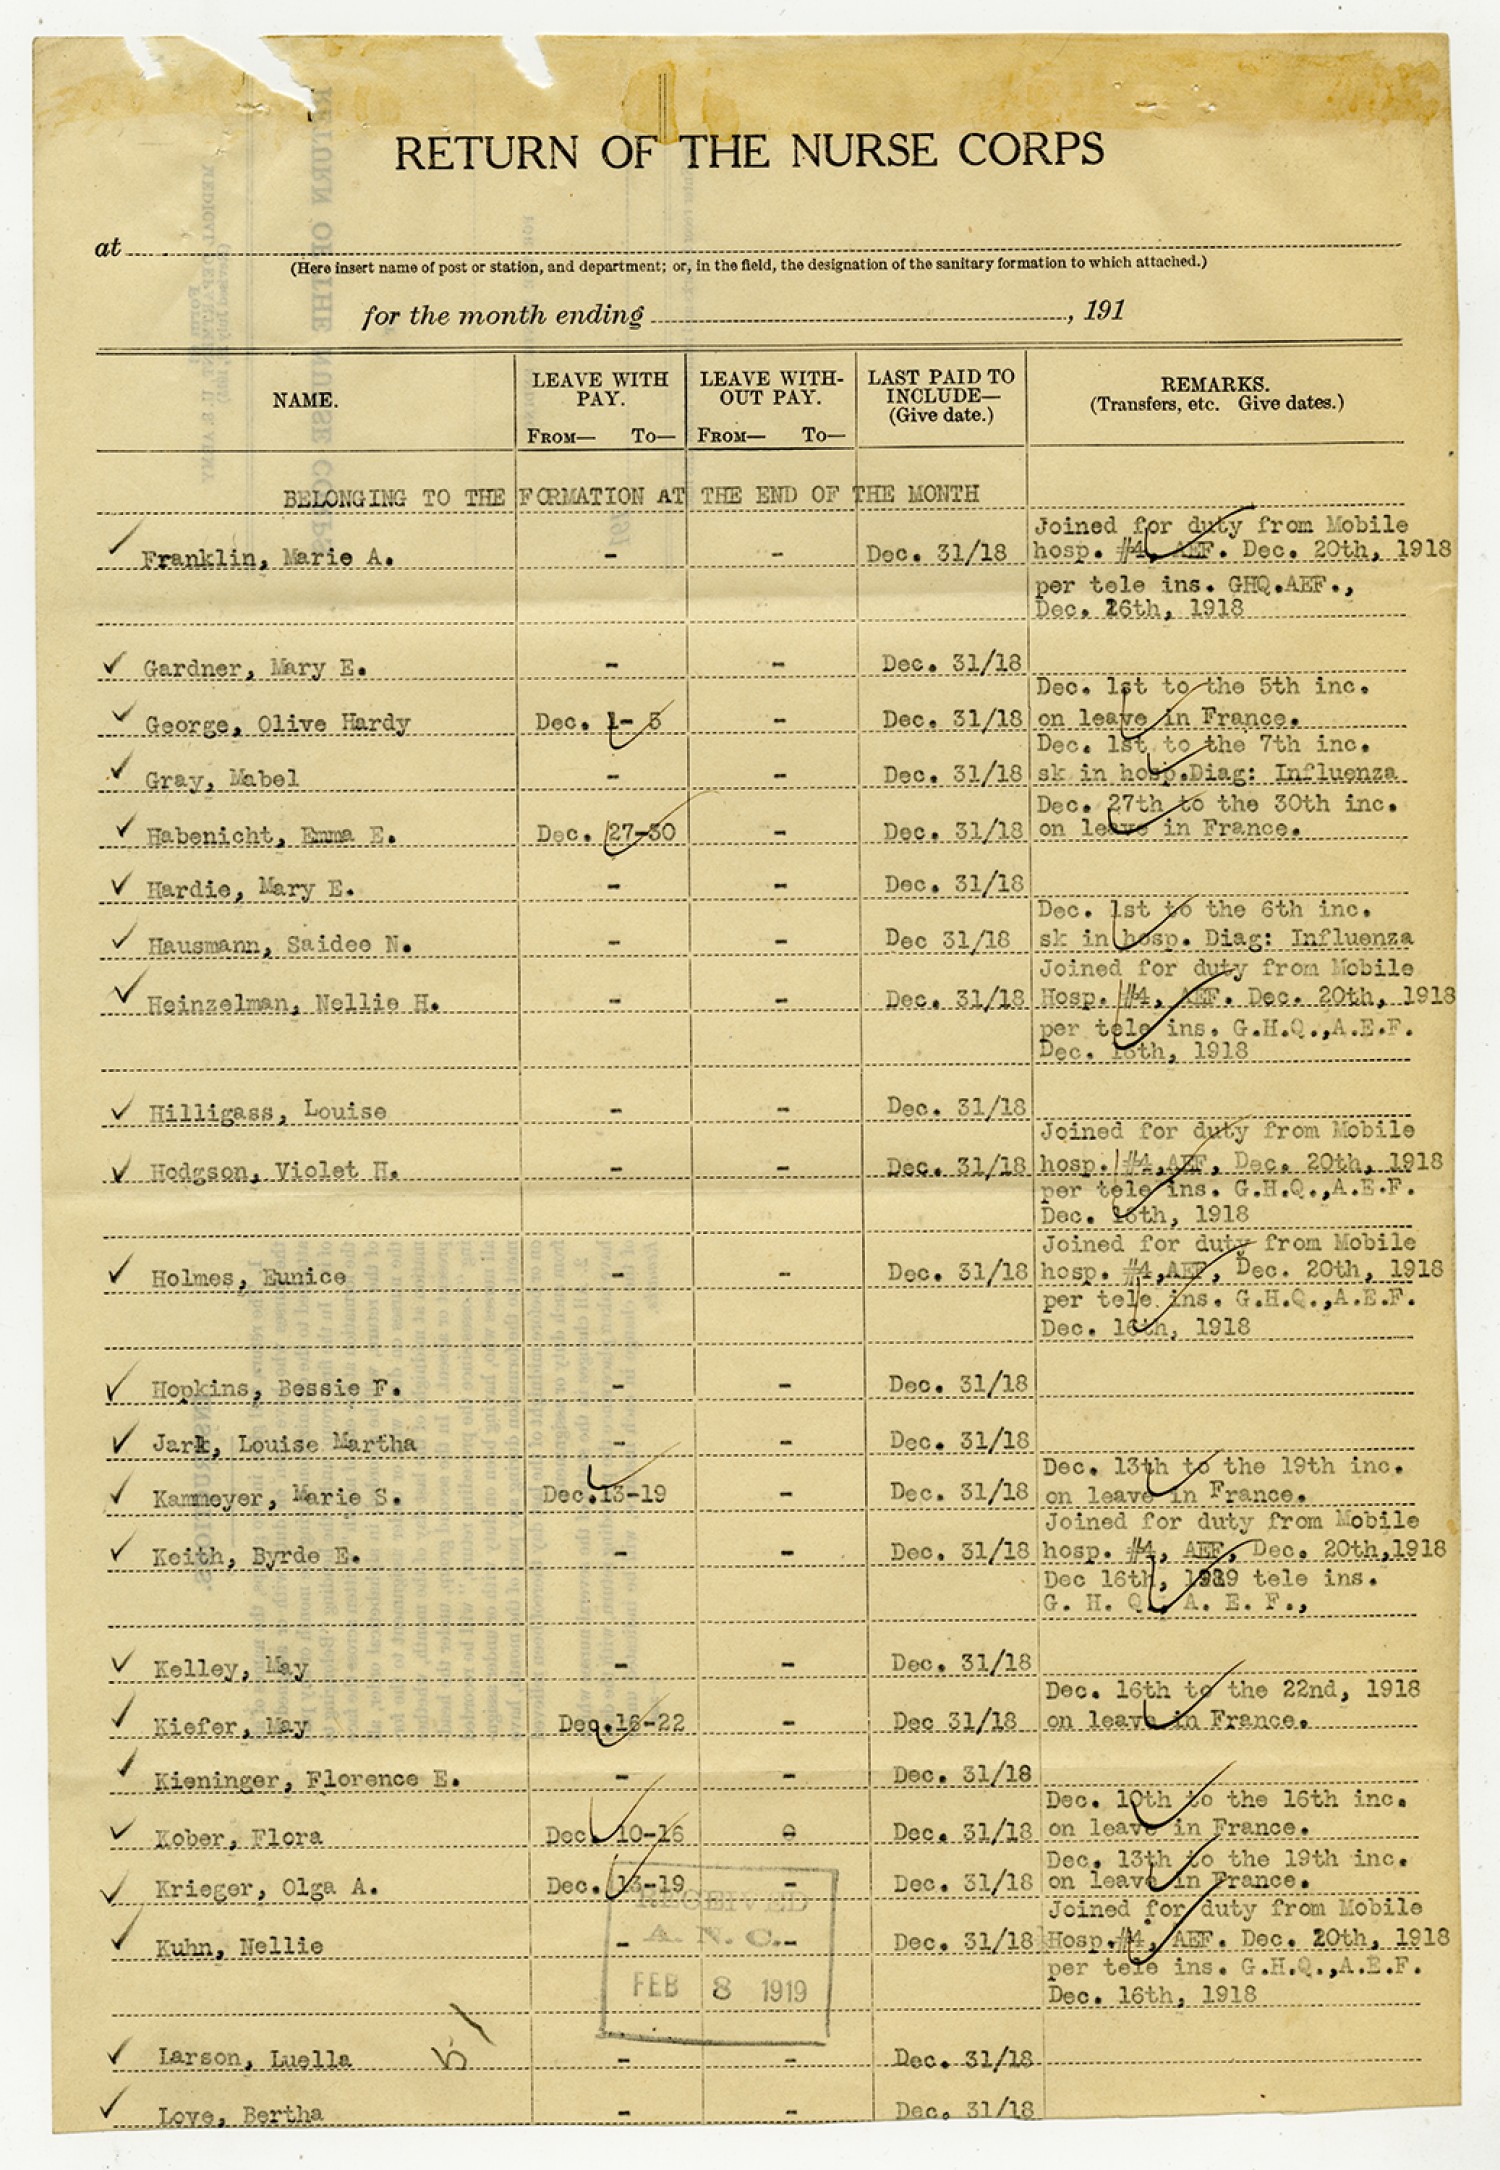 RETURN OF THE NURSE CORPS
at
(Here insert name of post or station, and department; or, in the field, the designation of the sanitary formation to which attached.)
for the month ending , 191
NAME. LEAVE WITH PAY. FROM— TO— LEAVE WITH-OUT PAY. FROM— TO— LAST PAID TO INCLUDE— (Give date.) REMARKS. (Transfers, etc. Give dates.)
BELONGING TO THE FORMATION AT THE END OF THE MONTH
Joined for duty from Mobile
Franklin, Marie A. - - Dec. 31/18 hosp. #4, AEF. Dec. 20th, 1918
per tele ins. GHQ.AEF.,
Dec. 16th, 1918
Gardner, Mary E. - - Dec. 31/18
Dec. 1st to the 5th inc.
George, Olive Hardy Dec. 1- 5 - Dec. 31/18 on leave in France.
Dec. 1st to the 7th inc.
Gray, Mabel - - Dec. 31/18 sk in hosp.Diag: Influenza
Dec. 27th to the 30th inc.
Habenicht, Emma E. Dec. 27-30 - Dec. 31/18 on leave in France.
Hardie, Mary E. - - Dec. 31/18
Dec. 1st to the 6th inc.
Hausmann, Saidee N. - - Dec 31/18 sk in hosp. Diag: Influenza
Joined for duty from Mobile
Heinzelman, Nellie H. - - Dec. 31/18 Hosp. #4, AEF. Dec. 20th, 1918
per tele ins. G.H.Q.,A.E.F.
Dec. 16th, 1918
Hilligass, Louise - - Dec. 31/18
Joined for duty from Mobile
Hodgson, Violet H. - - Dec. 31/18 hosp. #4,AEF, Dec. 20th, 1918
per tele ins. G.H.Q.,A.E.F.
Dec. 16th, 1918
Joined for duty from Mobile
Holmes, Eunice - - Dec. 31/18 hosp. #4,AEF, Dec. 20th, 1918
per tele ins. G.H.Q.,A.E.F.
Dec. 16th, 1918
Hopkins, Bessie F. - - Dec. 31/18
Jark, Louise Martha - - Dec. 31/18
Dec. 13th to the 19th inc.
Kammeyer, Marie S. Dec.13-19 - Dec. 31/18 on leave in France.
Joined for duty from Mobile
Keith, Byrde E. - - Dec. 31/18 hosp. #4, AEF, Dec. 20th,1918
Dec 16th, tele ins.
G. H. Q., A. E. F.,
Kelley, May - - Dec. 31/18
Dec. 16th to the 22nd, 1918
Kiefer, May Dec.16-22 - Dec 31/18 on leave in France.
Kieninger, Florence E. - - Dec. 31/18
Dec. 10th to the 16th inc.
Kober, Flora Dec. 10-16 - Dec. 31/18 on leave in France.
Dec. 13th to the 19th inc.
Krieger, Olga A. Dec. 13-19 - Dec. 31/18 on leave in France.
RECEIVED
Joined for duty from Mobile
Kuhn, Nellie - - Dec. 31/18 Hosp.#4, AEF. Dec. 20th, 1918
A. N. C.
per tele ins. G.H.Q.,A.E.F.
FEB 8 1919
Dec. 16th, 1918
Larson, Luella - - Dec. 31/18
Love, Bertha - - Dec. 31/18